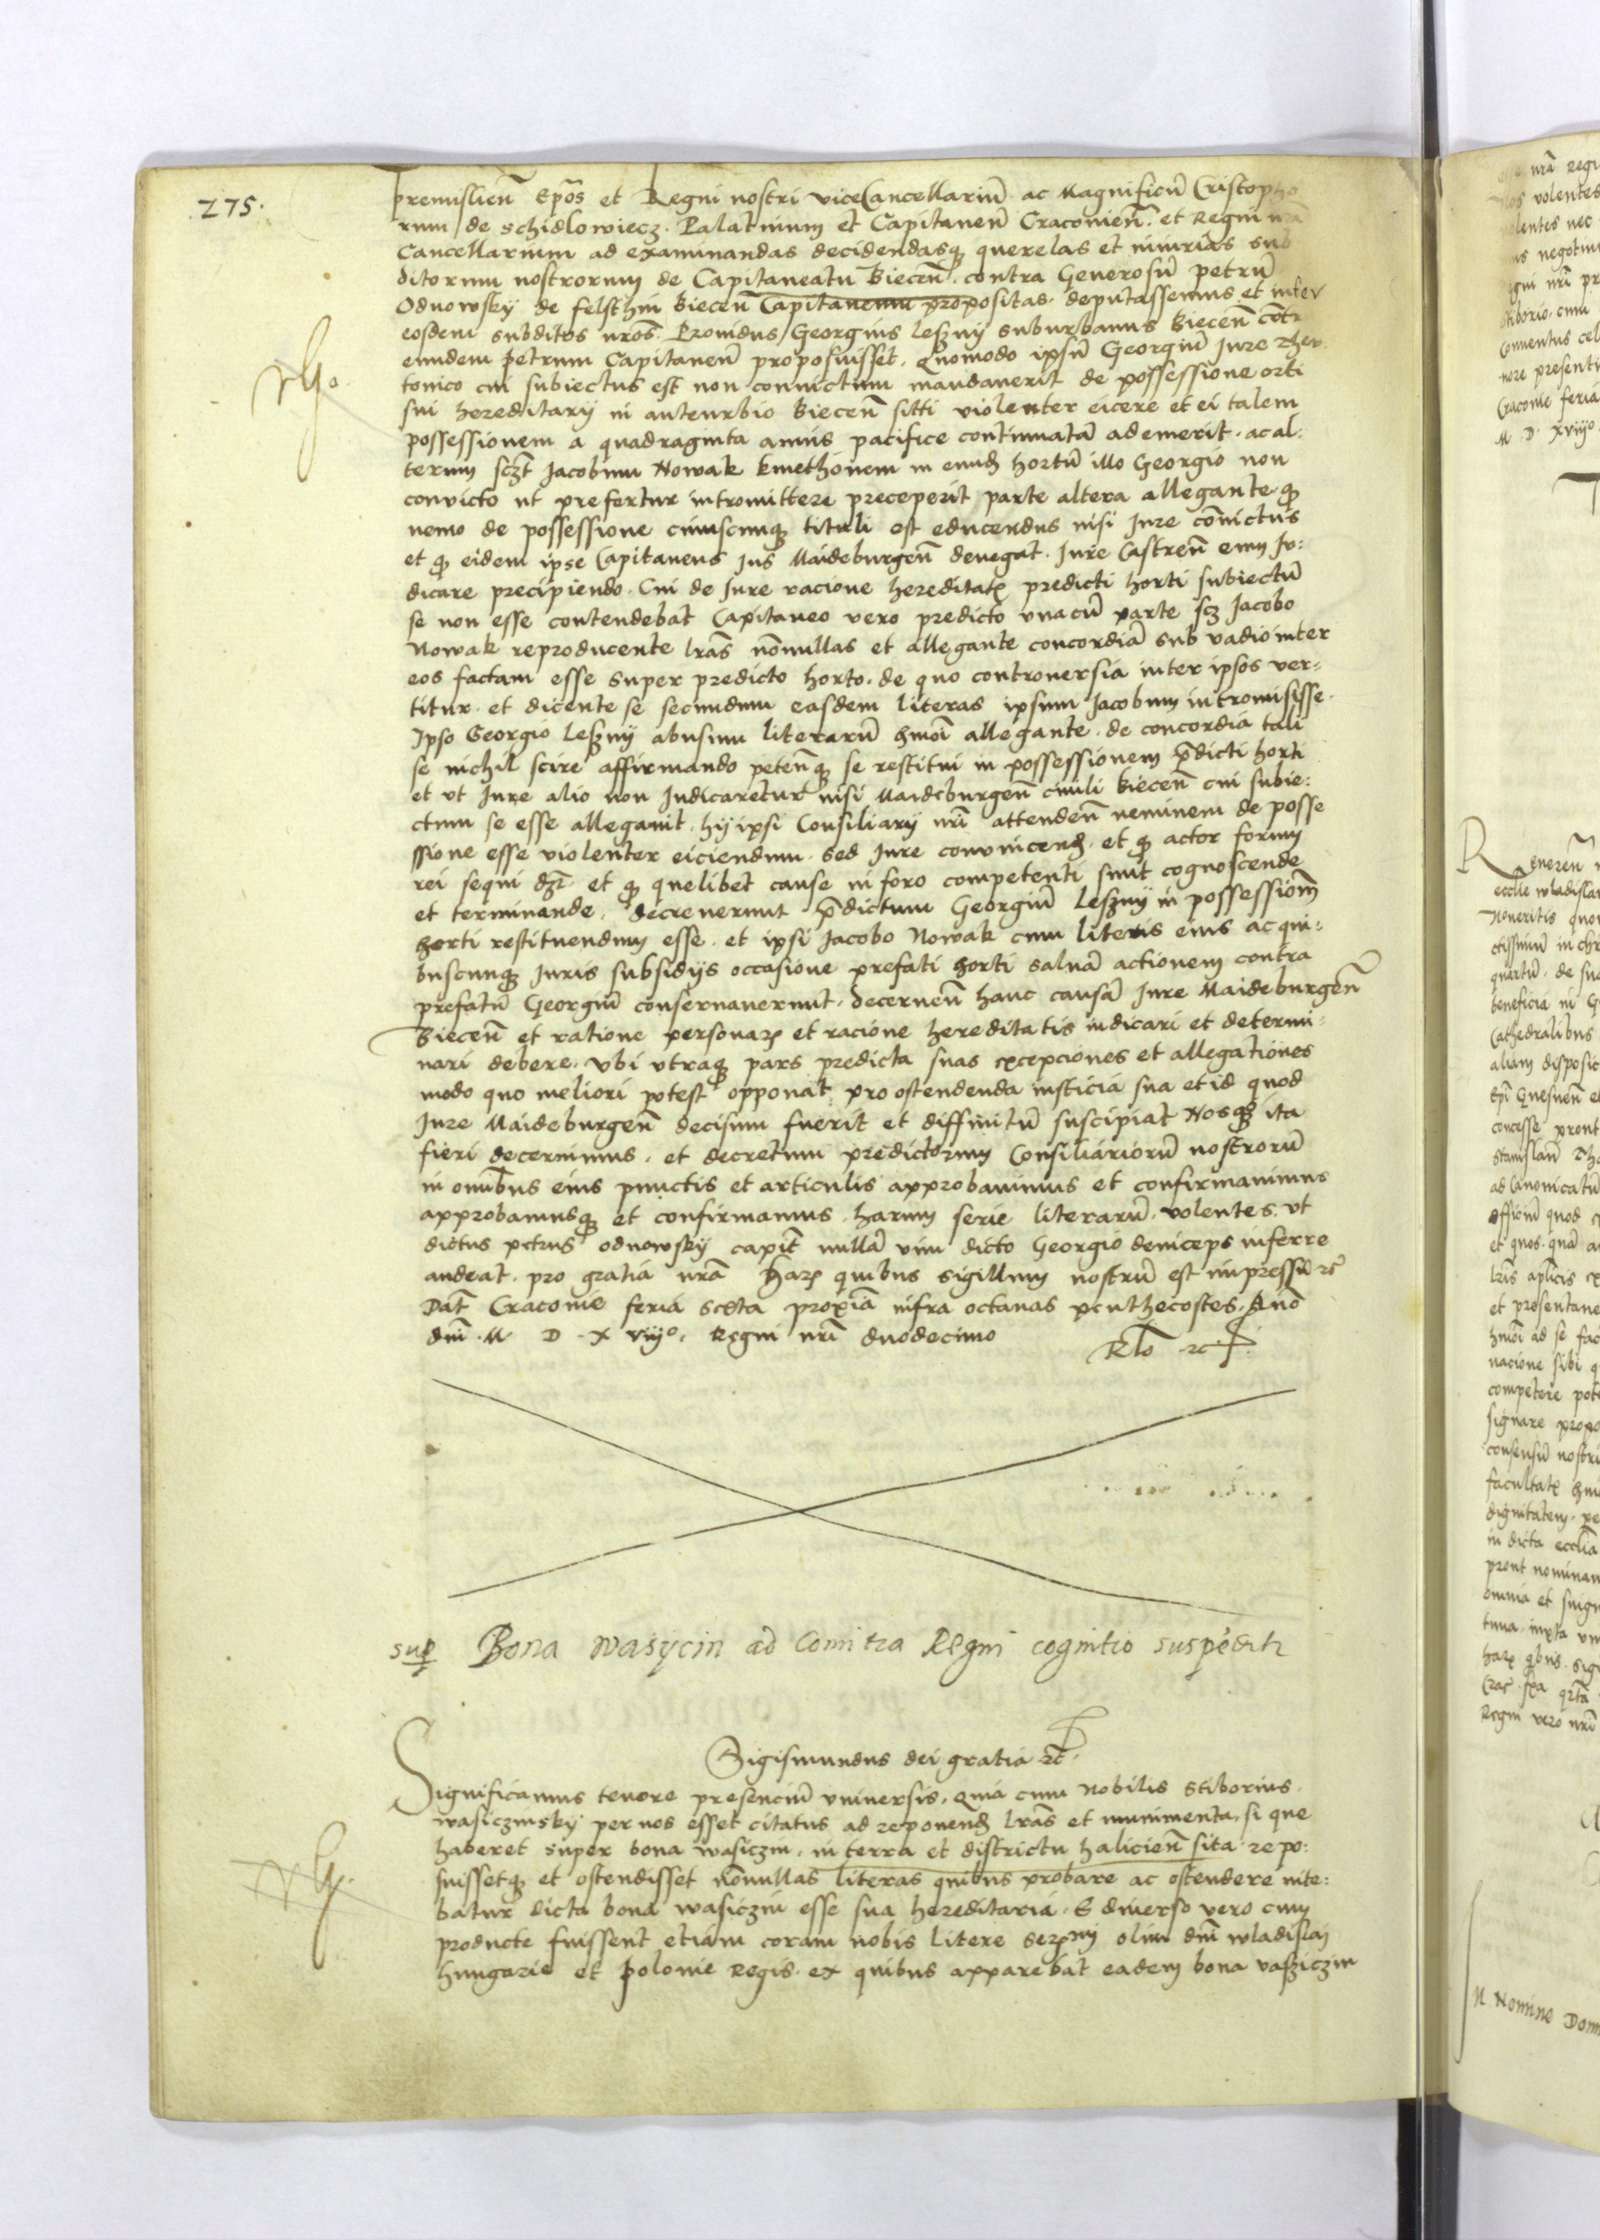 275.
premislien̄ Ep̄os et Regni nostri viceCancellariū ac Magnificū Cristopho
rum de Schidlowiecz. Palatinum et Capitaneū Cracovien̄. et Regni nr̄i
Cancellarium ad examinandas decidendasq̨ querelas et iniurias sub
ditorum nostrorum de Capitaneatu Biecen̄. contra Generosū petrū
Odnowsky de felsthin Biecen̄ Capitaneum propositas. deputassemus et inter
eosdem subditos nr̄os. Providus Georgius Leszny suburbanus Biecen̄ contr
eundem petrum Capitaneū proposuisset. Quomodo ipsū Georgiū Jure Theu
tonico cui subiectus est non convictum mandaverit de possessione orti
sui hereditarij in anteurbio Biecen̄ sitti violenter eicere et ei talem
possessionem a quadraginta annis pacifice continuatā ademerit. ac al:
terum scz̄t Jacobum Nowak kmethonem in eund̄ hortū illo Georgio non
convicto ut prefertur intromittere preceperit parte altera allegante q̨
nemo de possessione cuiuscunq̨ tituli est educendus nisi Jure cōvictus
et q̨ eidem ipse Capitaneus Jus Maideburgen̄ denegat. Jure Castren̄ eum Ju:
dicare precipiendo. Cui de Jure racione hereditat̨ predicti horti subiectū
se non esse contendebat Capitaneo vero predicto unacū parte scz̄ Jacobo
Nowak reproducente lr̄as nōnullas et allegante concordiā sub vadio inter
eos factam esse super predicto horto. de quo controversia inter ipsos ver:
titur. et dicente se secundum easdem literas ipsum Jacobum intromisisse.
Ipso Georgio Leszny abusum literarū hm̄oi allegante. de concordia tali
se nichil scire affirmando peten̄q̨ se restitui in possessionem p̄dicti horti
et ut Jure alio non Judicaretur nisi Maideburgen̄ civili Biecen̄ cui subie:
ctum se esse allegavit. hij ipsi Consiliarij nr̄i attenden̄ neminem de posse
ssione esse violenter eiciendum. sed Jure convincend̄. et q̨ actor forum
rei sequi dz̄. et q̨ quelibet cause in foro competenti sint cognoscende
et terminande. decreverunt p̄dictum Georgiū Leszny in possessionē
horti restituendum esse. et ipsi Jacobo Nowak cum literis eius ac qui:
buscunq̨ Juris subsidijs occasione prefati horti salvā actionem contra
prefatū Georgiū conservaverunt. decernen̄ hanc causā Jure Maideburgen̄
Biecen̄ et ratione personar̨ et racione hereditatis iudicari et determi:
nari debere. Ubi utraq̨ pars predicta suas excepciones et allegationes
modo quo meliori potest opponat pro ostendenda iusticia sua et id quod
Jure Maideburgen̄ decisum fuerit et diffinitū suscipiat Nosq̨ ita
fieri decernimus. et decretum predictorum Consiliariorū nostrorū
in omībus eius punctis et articulis approbavimus et confirmavimus
approbamusq̨ et confirmamus. harum serie literarū. volentes. ut
dictus petrus odnowsky capit̄ nullā vim dicto Georgio deinceps inferre
audeat. pro gratia nr̄a har̨ quibus sigillum nostrū est impressū etc̄
Dat̄ Cracovie feria sexta proxiā infra octavas penthecostes. Anō
dm̄. M D X viijo. Regni nr̄i duodecimo
Rl̄o etc̄
sup̱ Bona wasycin ad Comitia Regni cognitio suspēditr
Sigismundus dei gratia etc̄.
Significamus tenore presenciū universis. Quia cum Nobilis Stiborius
wasiczinsky per nos esset citatus ad reponend̄ lr̄as et munimenta. si que
haberet super bona wasiczin. in terra et districtu halicien̄ sita. repo:
suissetq̨ et ostendisset nōnullas literas quibus probare ac ostendere nite:
batur dicta bona wasiczin esse sua hereditaria. E diverso vero cum
producte fuissent etiam coram nobis litere ser̨mi olim dn̄i wladislai
hungarie et polonie Regis. ex quibus apparebat eadem bona vasziczin